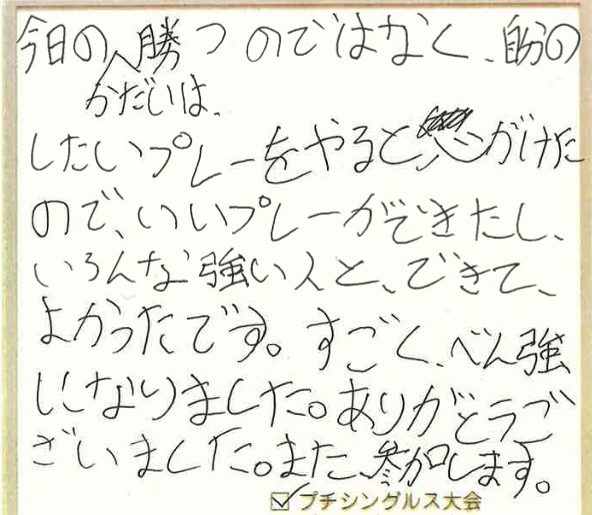 今日の勝つのではなく、自分の
かだいは、
したいプレーをやると心がけた
ので、いいプレーができたし、
いろんな強い人と、できて、
よかったです。すごく、べん強
になりました。ありがとうご
ざいました。また、参加します。
☑プチシングルス大会